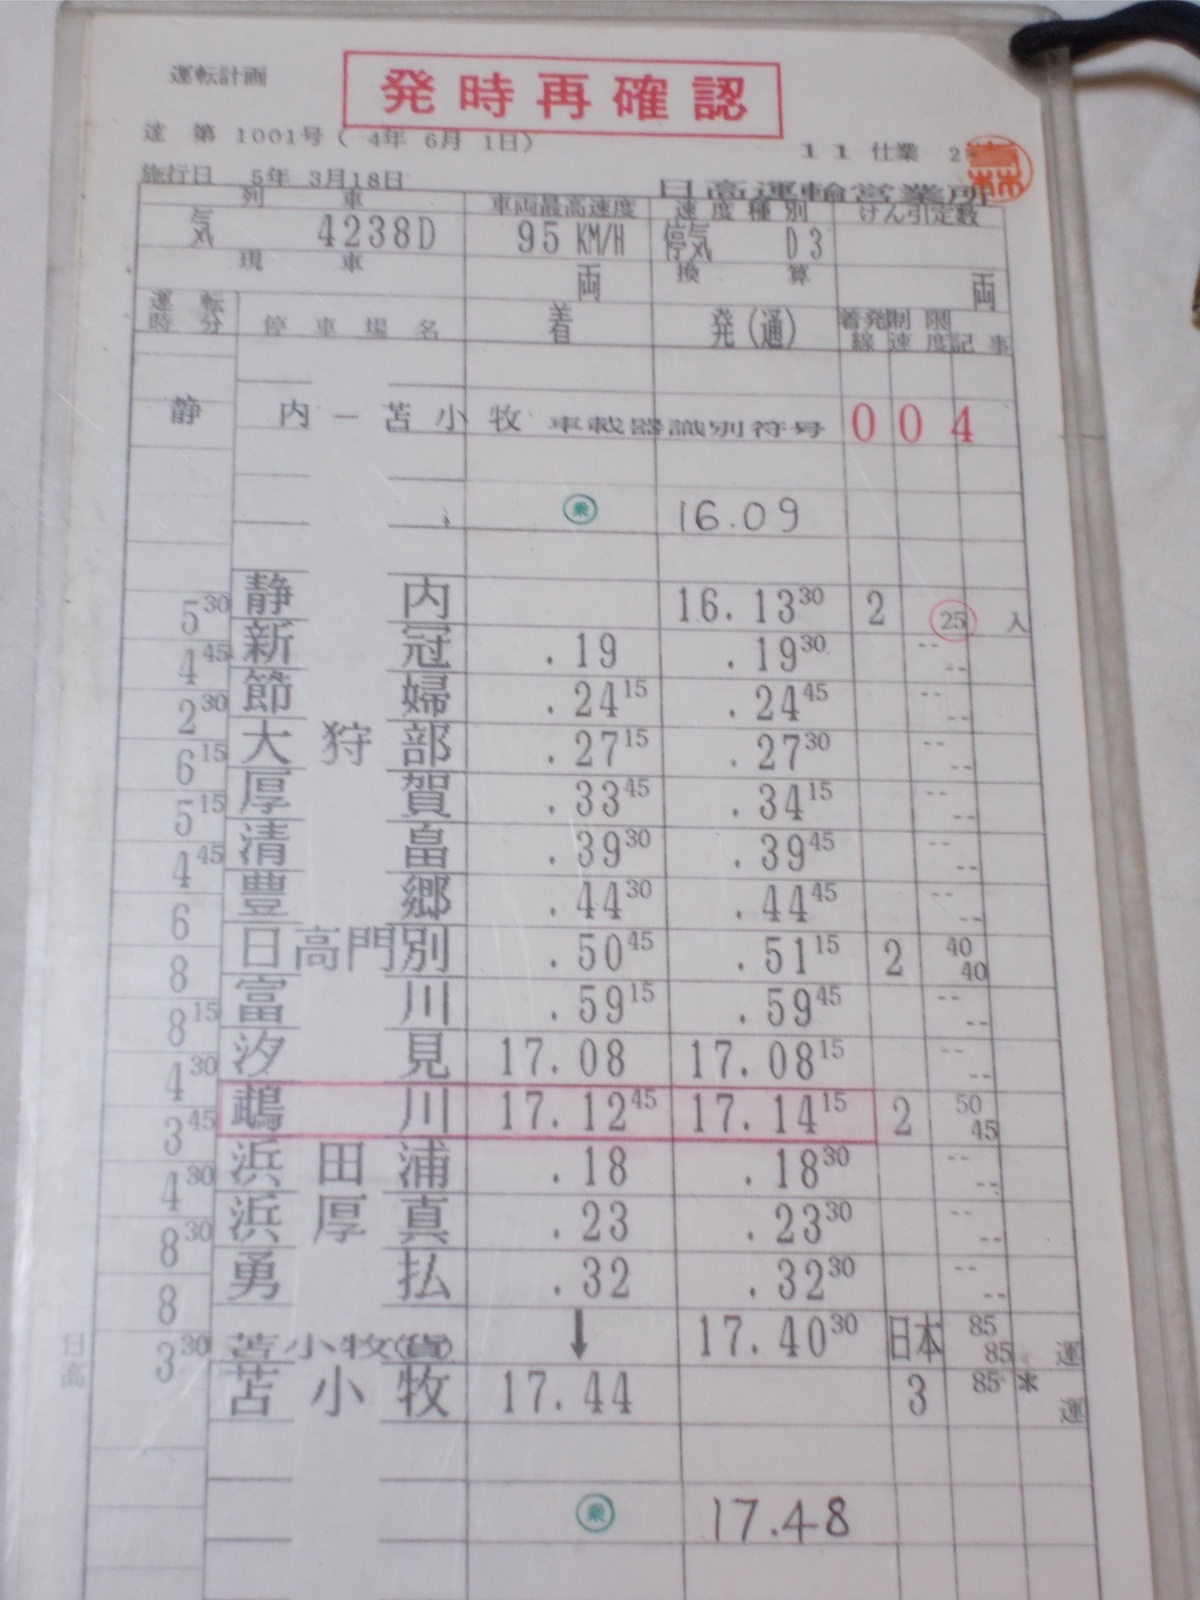 運転計画
発時再確認
達 第 1001号( 4年 6月 1日)
11 仕業 2
施行日 5年 3月18日
日高運輸営業所
列 車 車両最高速度 速度種別 けん引定数
気 4238D 95 KM/H 停気 D3
現 車 両 換 算 両
運転時分 停車場名 着 発(通) 着発線 制限速度 記事
静 内 ー 苫 小 牧 車載器識別符号 004
乗 16.09
静内 16.13 30 2 25 入
5 30
新冠 .19 .19 30 -- --
4 45
節婦 .24 15 .24 45 -- --
2 30
大狩部 .27 15 .27 30 -- --
6 15
厚賀 .33 45 .34 15 -- --
5 15
清畠 .39 30 .39 45 -- --
4 45
豊郷 .44 30 .44 45 -- --
6
日高門別 .50 45 .51 15 2 40 40
8
富川 .59 15 .59 45 -- --
8 15
汐見 17.08 17.08 15 -- --
4 30
鵡川 17.12 45 17.14 15 2 50 45
3 45
浜田浦 .18 .18 30 -- --
4 30
浜厚真 .23 .23 30 -- --
8 30
勇払 .32 .32 30 -- --
8
苫小牧(貨) ↓ 17.40 30 日本 85 85 運
3 30
苫小牧 17.44 3 85 * 運
日高
乗 17.48